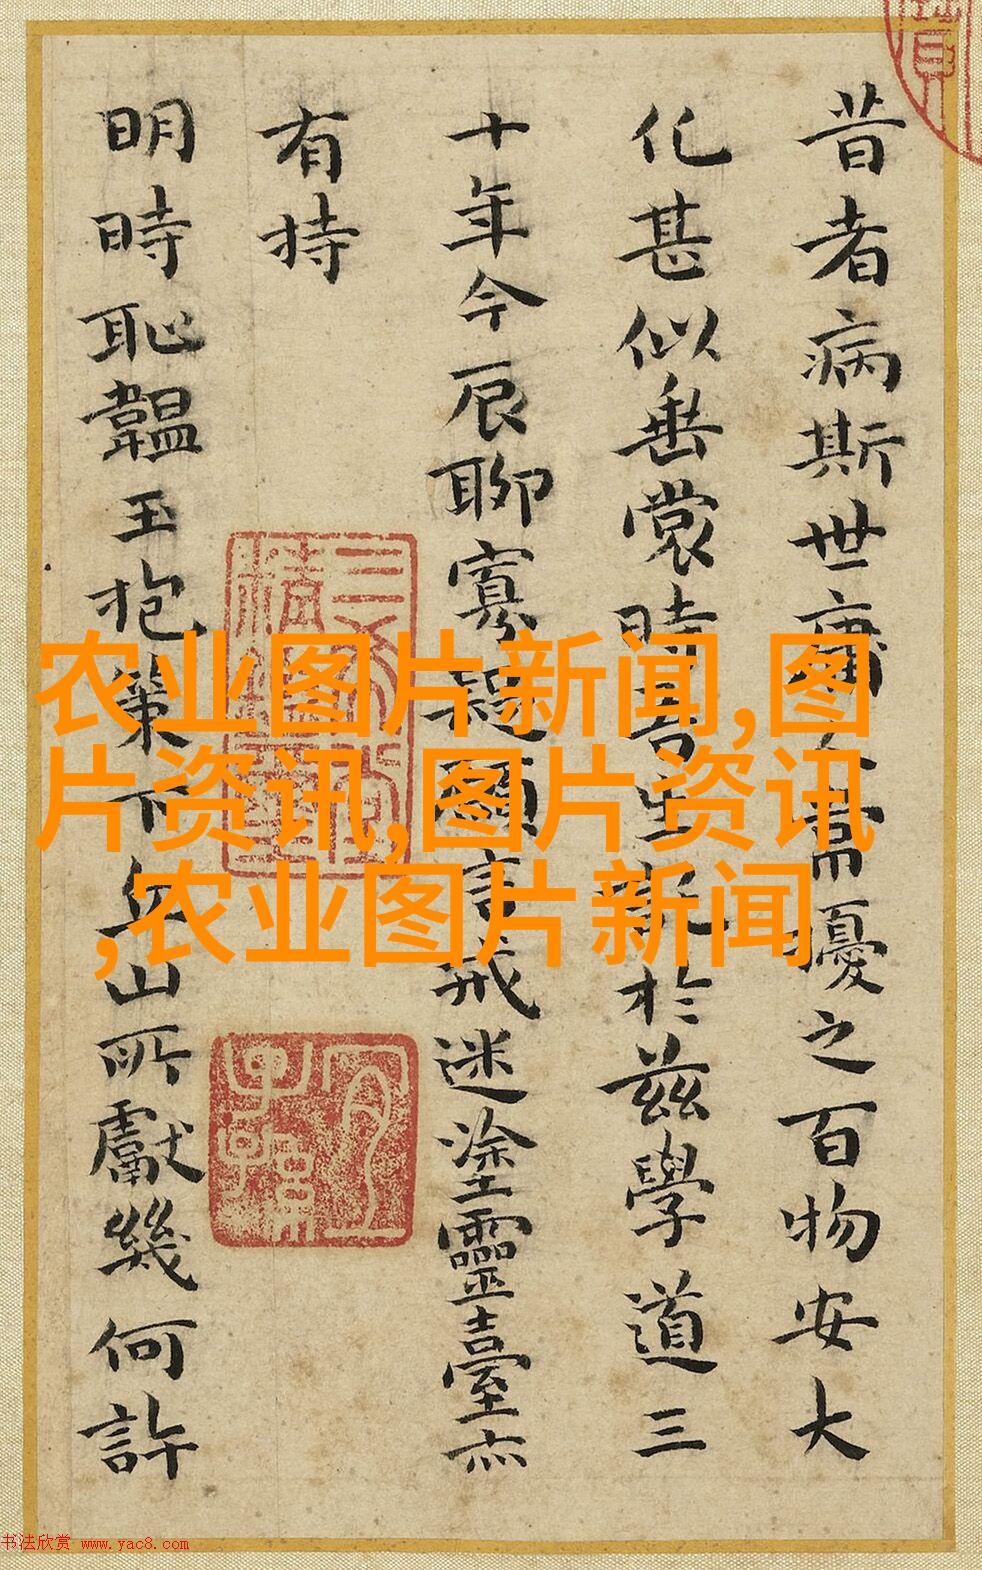 昔者病斯世庸人擾之百物安大
化甚似垂裳時吾生託於茲學道三
十年今辰聊寡願言戒迷塗靈臺亦
有持
明時恥韞玉抱策下丘山所獻幾何許
农业图片新闻,图
片资讯,图片资讯
,农业图片新闻
书法欣赏 www.yac8.com